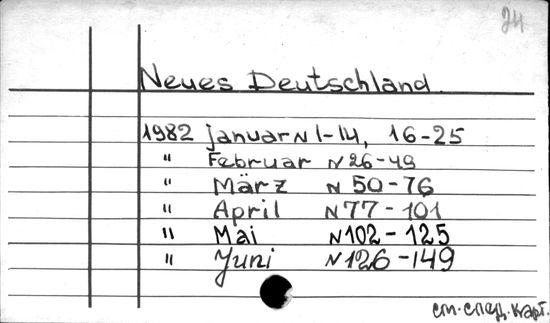 24
Neues Deutschland
1982 Januar N 1-14, 16-25
" Februar N 26-49
" März N 50-76
" April N 77-101
" Mai N 102-125
" Juni N 126-149
см. спец. карт.